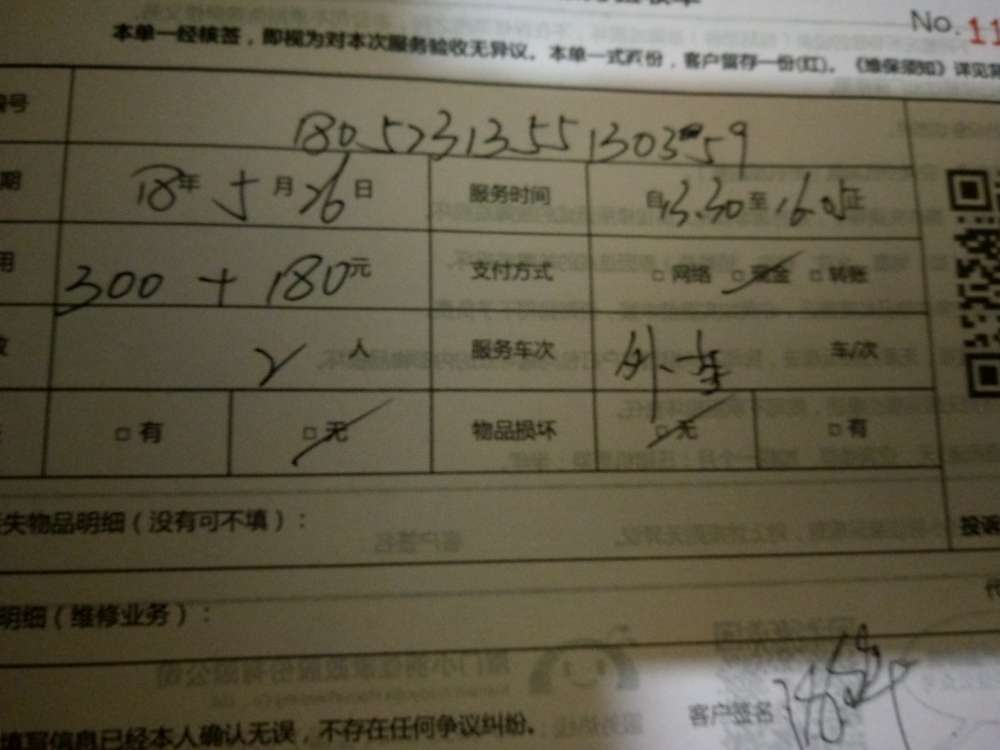 No. 11
本单一经核签，即视为对本次服务验收无异议。本单一式两份，客户留存一份(红)。《维保须知》详见背
号
18052313551303 59
期 18年5月26日 服务时间 自13.30至16.05止
用 300 + 180元 支付方式 □ 网络 □ 现金 □ 转账
2人 服务车次 外车 车/次
□ 有 □ 无 物品损坏 □ 无 □ 有
失物品明细（没有可不填）：
投诉
明细（维修业务）：
客户签名：
填写信息已经本人确认无误，不存在任何争议纠纷。